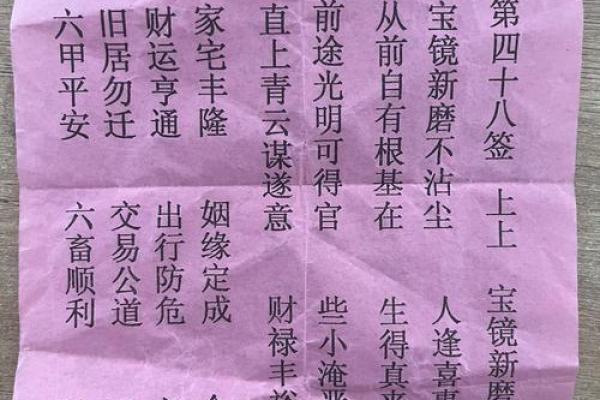 第四十八签 上上 宝镜新磨
宝镜新磨不沾尘 人逢喜事
从前自有根基在 生得真
前途光明可得官 些小淹
直上青云谋遂意 财禄丰
家宅丰隆 姻缘定成
财运亨通 出行防危
旧居勿迁 交易公道
六甲平安 六畜顺利